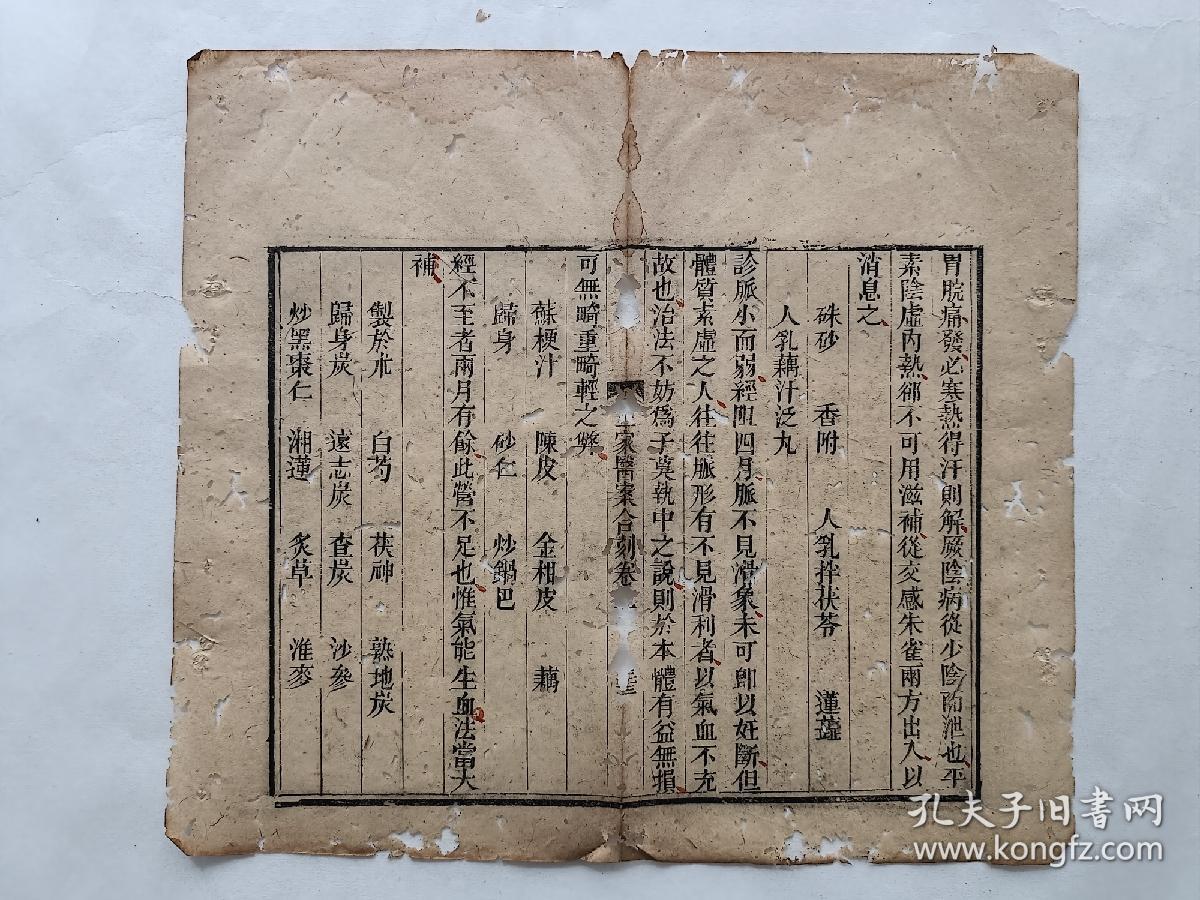 胃脘痛發必寒熱得汗則解厥陰病從少陰而泄也平
素陰虛內熱卻不可用滋補從交感朱雀兩方出入以
消息之
硃砂 香附 人乳拌茯苓 蓮蕋
人乳藕汁泛丸
診脈小而弱經阻四月脈不見滑象未可卽以妊斷但
體質素虛之人往往脈形有不見滑利者以氣血不充
故也治法不妨爲子莫執中之說則於本體有益無損
可無畸重畸輕之弊
蘇梗汁 陳皮 金柑皮 藕
歸身 砂仁 炒鍋巴
經不至者兩月有餘此營不足也惟氣能生血法當大
補
製於朮 白芍 茯神 熟地炭
歸身炭 遠志炭 查炭 沙參
炒黑棗仁 湘蓮 炙草 淮麥
家醫案合刻卷
孔夫子旧书网
www.kongfz.com